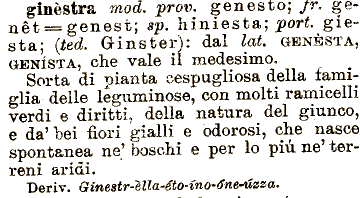 ginèstra mod. prov. genesto; fr. ge-
nêt=genest; sp. hiniesta; port. gie-
sta; (ted. Ginster): dal lat. GENÈSTA,
GENÍSTA, che vale il medesimo.
Sorta di pianta cespugliosa della fami-
glia delle leguminose, con molti ramicelli
verdi e diritti, della natura del giunco,
e da' bei fiori gialli e odorosi, che nasce
spontanea ne' boschi e per lo piú ne' ter-
reni aridi.
Deriv. Ginestr-èlla-éto-íno-óne-úzza.